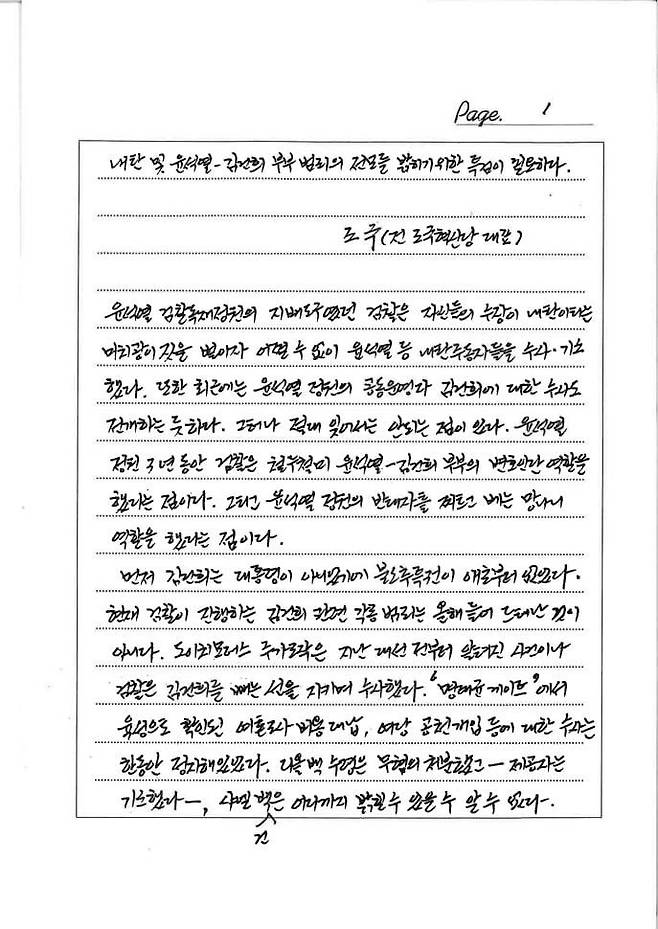 Page. 1
내란 및 윤석열-김건희 부부 범죄의 전모를 밝히기 위한 특검이 필요하다.
조 국 (전 조국혁신당 대표)
윤석열 검찰독재정권의 지배도구였던 검찰은 자신들의 수장이 내란이라는
미치광이 짓을 벌이자 어쩔 수 없이 윤석열 등 내란주동자들을 수사·기소
했다. 또한 최근에는 윤석열 정권의 공동운영자 김건희에 대한 수사도
전개하는 듯하다. 그러나 절대 잊어서는 안되는 점이 있다. 윤석열
정권 3년 동안 검찰은 철두철미 윤석열-김건희 부부의 변호인단 역할을
했다는 점이다. 그리고 윤석열 정권의 반대자를 찌르고 베는 망나니
역할을 했다는 점이다.
먼저 김건희는 대통령이 아니었기에 불소추특권이 애초부터 없었다.
현재 검찰이 진행하는 김건희 관련 각종 범죄는 올해 들어 드러난 것이
아니다. 도이치모터스 주가조작은 지난 대선 전부터 알려진 사건이나
검찰은 김건희를 빼는 선을 지키며 수사했다. '명태균 게이트'에서
육성으로 확인된 여론조사 비용 대납, 여당 공천개입 등에 대한 수사는
한동안 정지해있었다. 디올 백 수령은 무혐의 처분했고 - 제공자는
기소했다 -, 샤넬 백건은 어디까지 밝힐 수 있을 수 알 수 없다.